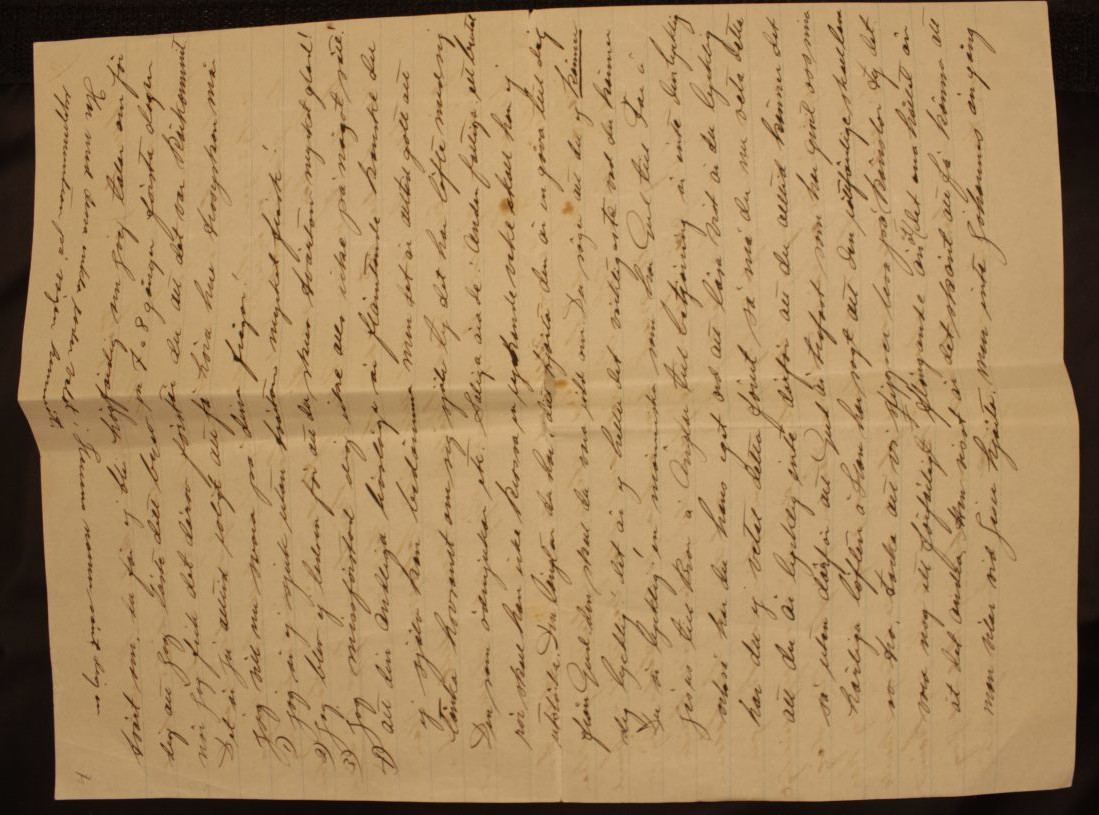 4
tvärt om. du får ej bli högfärdig om jag talar om för
dig att jag läste ditt brev 7 a 8 gånger första dagen
när jag fick det därav förstår du att det var kärkommet
Det är ju alltid roligt att få höra hur trosyskon mår
jag vill nu svara på dina frågor!
1) jag är ej sjuk utan tvärtom mycket frisk!
2) jag blev ej ledsen för att du skrev tvärtom mycket glad!
3) jag missförstod dig icke alls icke på något sätt!
4) att din andliga livslåga är flämtande kanske du
ej själv kan bedömma men det är alltid gott att
tänka sig själv ty det har löfte med sig
Den som ödmjukar etc. Saliga äro de i Anden fattiga. ett brutet
rör skall han icke krossa en rykande veke skall han ej
utsläcka. Den längtan du har i ditt hjärta den är en gåva till dig
från Gud. den skall du vara rädd om. Du säger att du ej känner
dig lycklig! det är ej heller det viktigaste vad du känner
Du är lycklig! en människa som har Gud till Far å
Jesus till Bror å Änglar till betjäning är inte den lycklig
också har du hans eget ord att läsa Visst är du lycklig
har du ej vetat detta förut så må du nu veta detta
att du är lycklig inte därför att du alltid känner det
så utan därför att Gud är trofast som har givit oss sina
härliga löften å Han har sagt att den rättfärdige skall leva
av tro. tacka att vi leva på känslor ty det
vore nog ett förfärligt flängande än åt det ena hållet än
åt det andra. Men visst är det skönt att få känna att
man vilar vid Jesu hjärta. men inte Johannes än gång